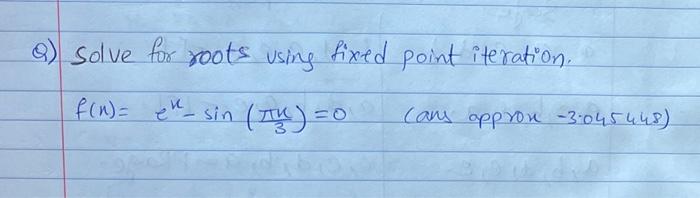 Q) Solve for roots using fixed point iteration.
f(x) = e^x - sin (πx/3) = 0 (ans approx -3.045448)